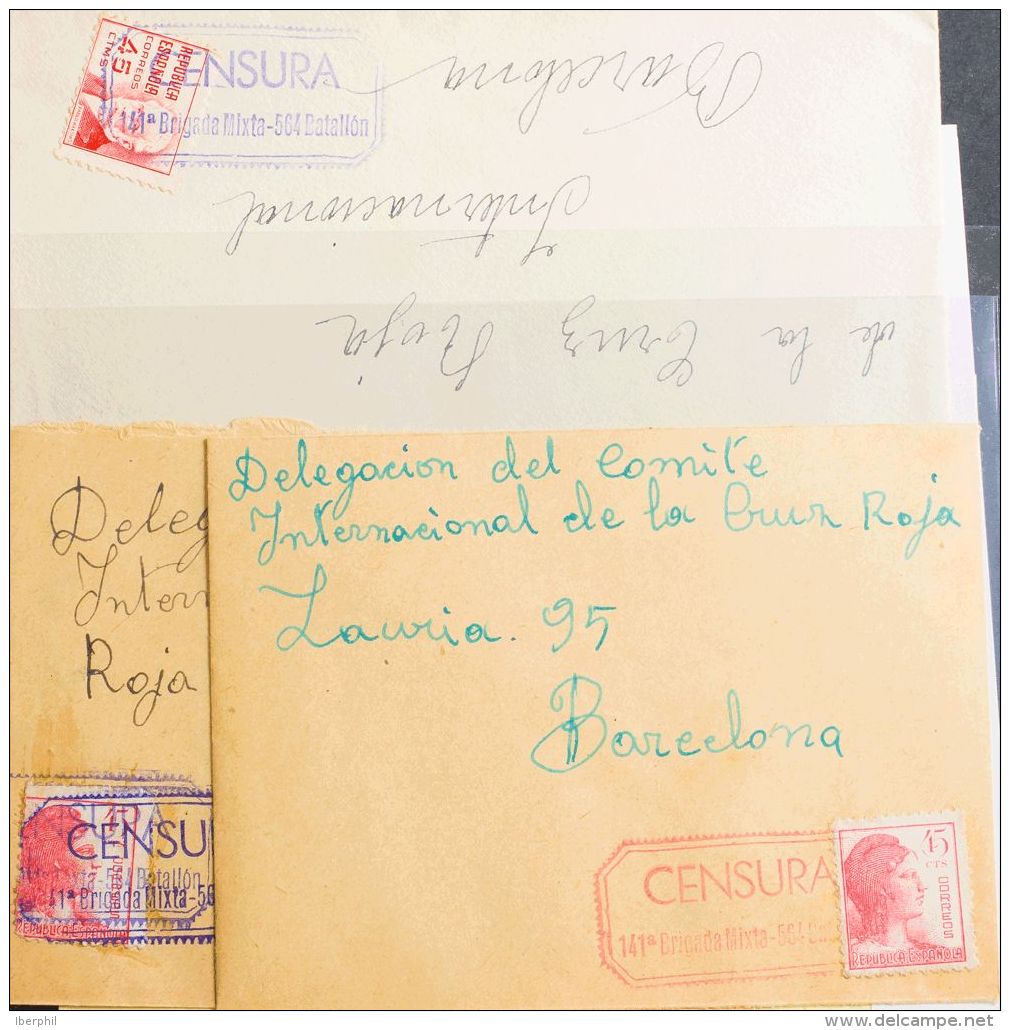 REPUBLICA
ESPAÑOLA
CORREOS
45
CTMS
CENSURA
141ª Brigada Mixta-564 Batallón
Barcelona
Internacional
de la Cruz Roja
Deleg
Intern
Roja
CENSU
1ª Brigada Mixta-56
REPUBLICA ESPAÑOLA
Delegacion del Comite
Internacional de la Cruz Roja
Lauria. 95
Barcelona
CENSURA
141ª Brigada Mixta-564
45
CTS
CORREOS
REPUBLICA ESPAÑOLA
Iberphil
www.delcampe.net